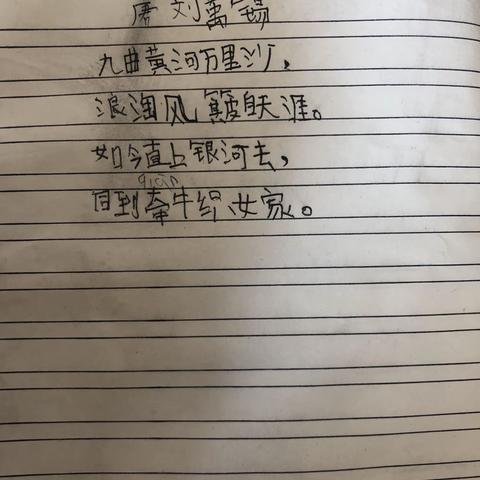 唐 刘禹锡
九曲黄河万里沙，
浪淘风簸自天涯。
如今直上银河去，
qian
同到牵牛织女家。